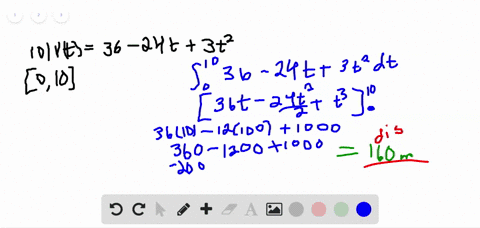 10) v(t) = 36 - 24t + 3t²
[0, 10]
∫₀¹⁰ 36 - 24t + 3t² dt
[36t - 24t²/2 + t³]₀¹⁰
36(10) - 12(100) + 1000
360 - 1200 + 1000
-200
= 160 m
dis
A